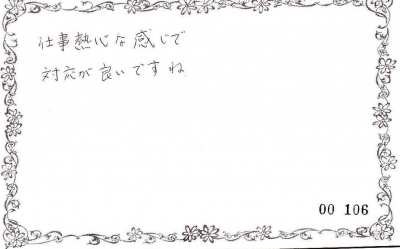 仕事熱心な感じで
対応が良いですね
00 106